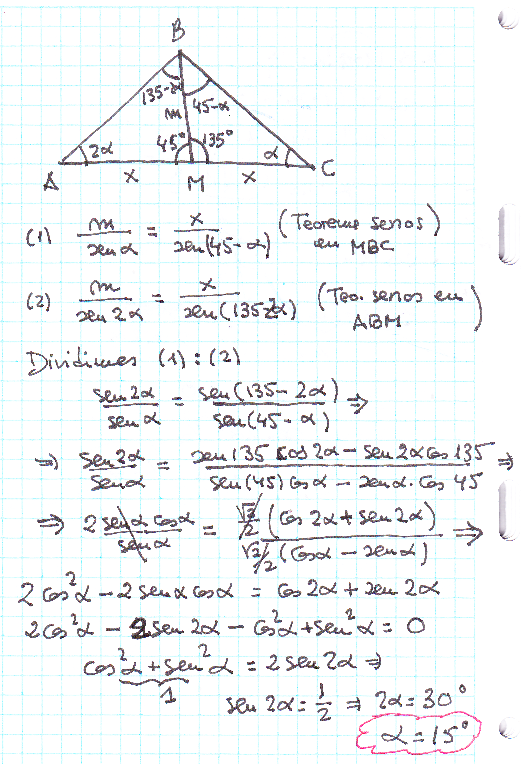 B
135-α
45-α
m
2α
45°
135°
α
A
x
M
x
C
(1) m/sen α = x/sen(45-α) (Teorema senos en MBC)
(2) m/sen 2α = x/sen(135-2α) (Teo. senos en ABM)
Dividimos (1):(2)
sen 2α/sen α = sen(135-2α)/sen(45-α) ⇒
⇒ sen 2α/sen α = sen 135 cos 2α - sen 2α cos 135/sen(45) cos α - sen α · cos 45 ⇒
⇒ 2 sen α cos α/sen α = √2/2 (cos 2α + sen 2α)/√2/2 (cos α - sen α) ⇒
2 cos²α - 2 sen α cos α = cos 2α + sen 2α
2 cos²α - 2 sen 2α - cos²α + sen²α = 0
cos²α + sen²α = 2 sen 2α ⇒
1
sen 2α = 1/2 ⇒ 2α = 30°
α = 15°